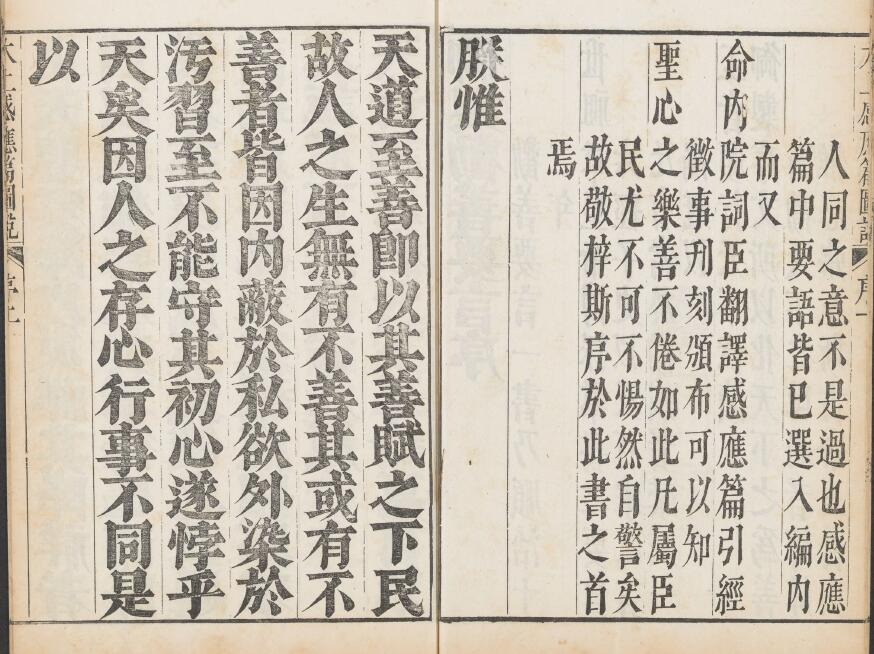 人同之意不是過也感應
篇中要語皆已選入編內
而又
命內院詞臣翻譯感應篇引經
徵事刊刻頒布可以知
聖心之樂善不倦如此凡屬臣
民尤不可不惕然自警矣
故敬梓斯序於此書之首
焉
朕惟
天道至善卽以其善賦之下民
故人之生無有不善其或有不
善者皆因內蔽於私欲外染於
汚習至不能守其初心遂悖乎
天矣因人之存心行事不同是
以